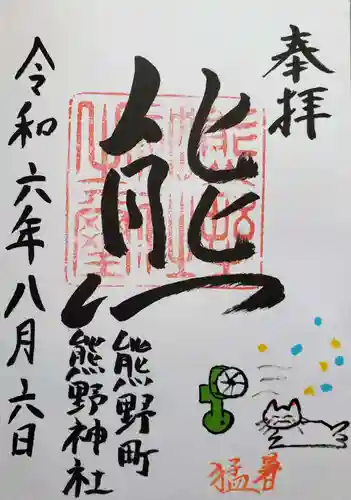 奉拝
熊
熊野町
熊野神社
令和六年八月六日
猛暑